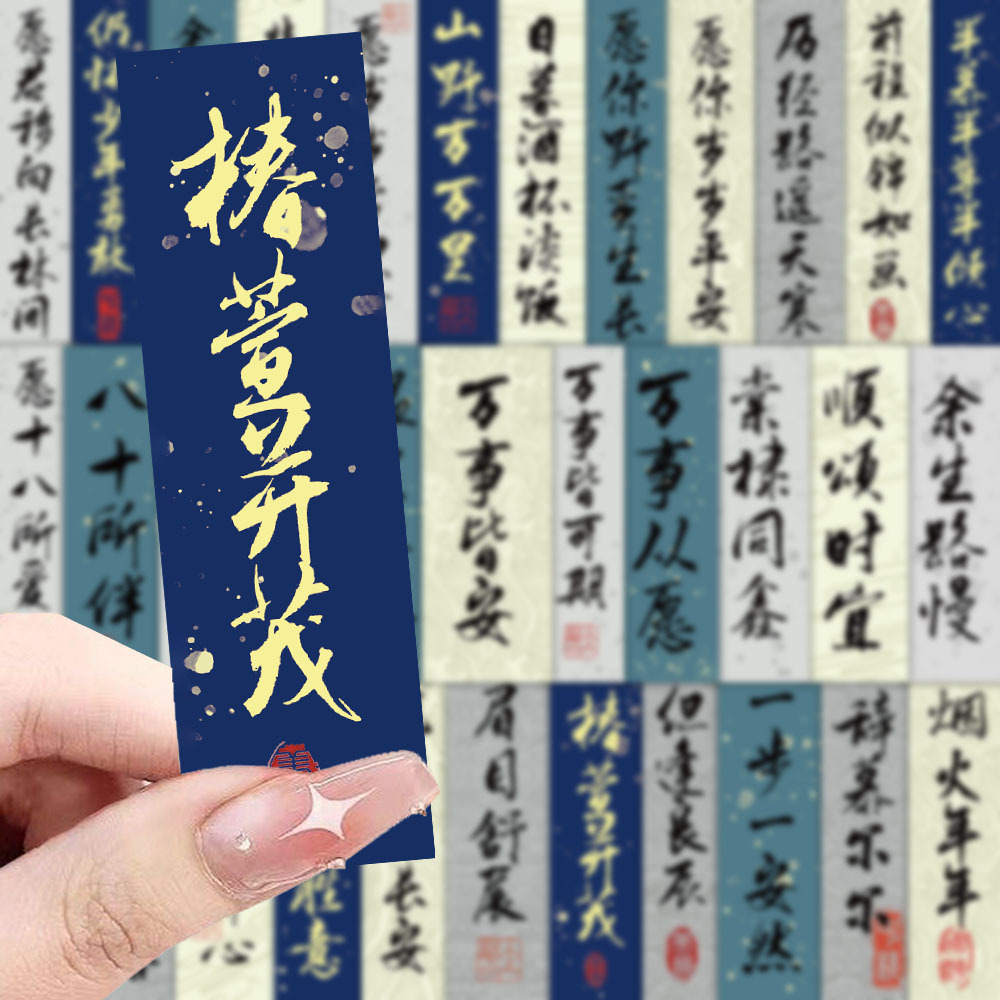 椿萱并茂
愿君移向长林间
仍怀少年勇敢
山野万万里
日暮酒杯淡饭
愿你野蛮生长
愿你岁岁平安
历经路遥天寒
前程似锦如画
愿十八所爱
八十所伴
万事皆安
万事皆可期
万事从愿
棠棣同鑫
顺颂时宜
余生路慢
胜意
长安
眉目舒展
椿萱并茂
但逢良辰
一步一安然
辞暮尔尔
烟火年年